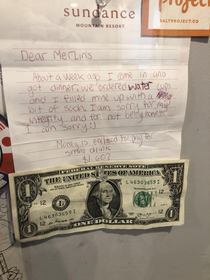 sundance
MOUNTAIN RESORT
project
SALTPROJECT.CO
Dear Merlins
About a week ago I came in and
got dinner, we ordered water cups
and I filled mine up with a
bit of soda. I am sorry for my
integrity and for not being honest
I am sorry :)
Money is enclosed for my
small drink
$1.00
FEDERAL RESERVE NOTE
THE UNITED STATES OF AMERICA
L 46303653 I
L 46303653 I
ONE DOLLAR
1